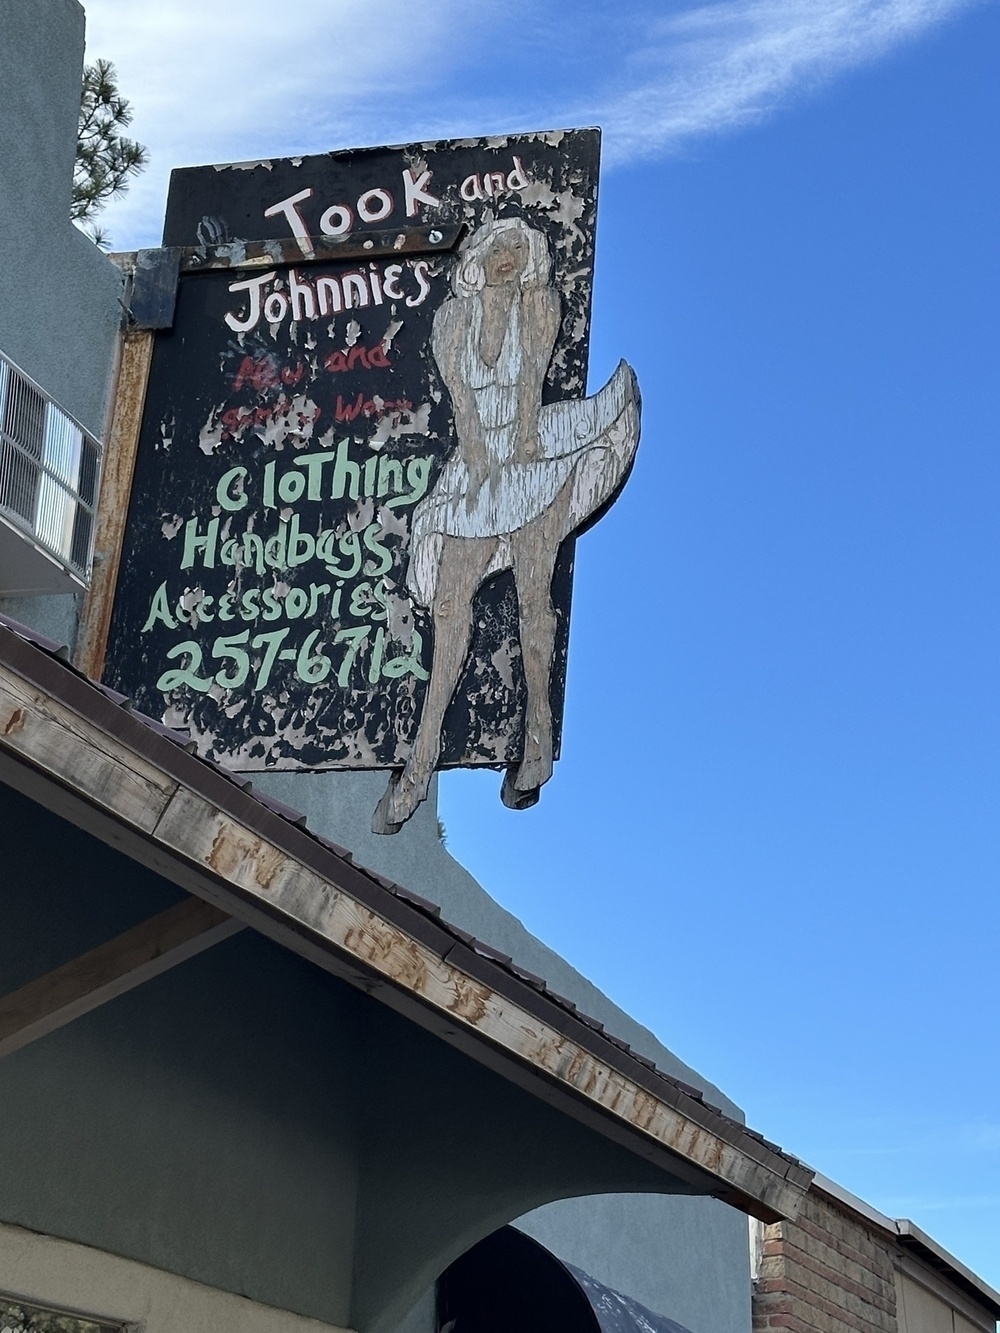 Took and
Johnnie's
New and
gently Worn
Clothing
Handbags
Accessories
257-6712